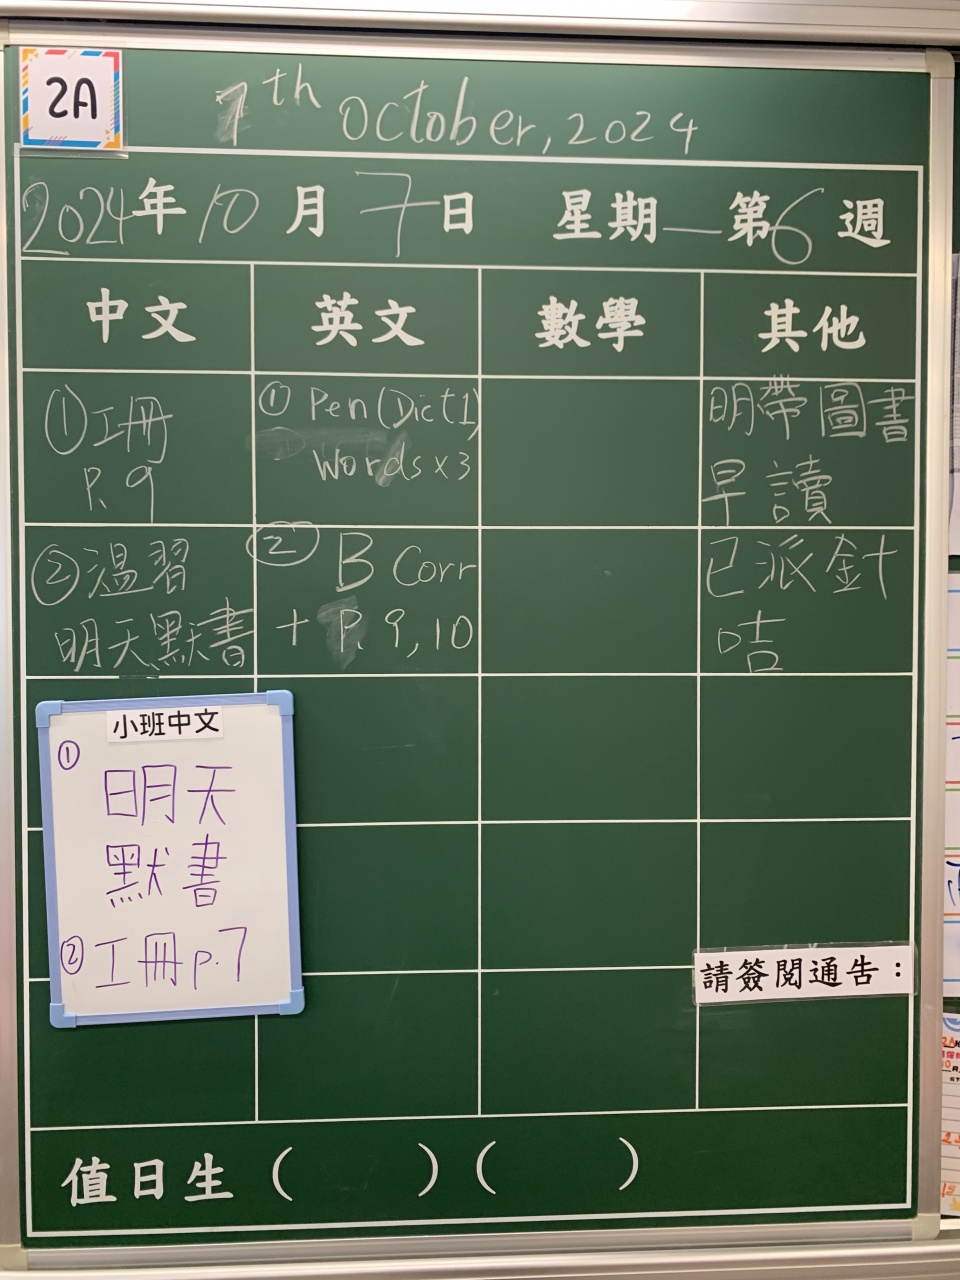 2A
7th October, 2024
2024年10月7日 星期一 第6週
中文 英文 數學 其他
①工冊
P.9
① Pen (Dict 1)
Words x 3
明帶圖書
早讀
②温習
明天默書
② B Corr
+ P. 9, 10
已派針
咭
小班中文
①
明天
默書
② 工冊 p.7
請簽閱通告：
值日生 (　　) (　　)